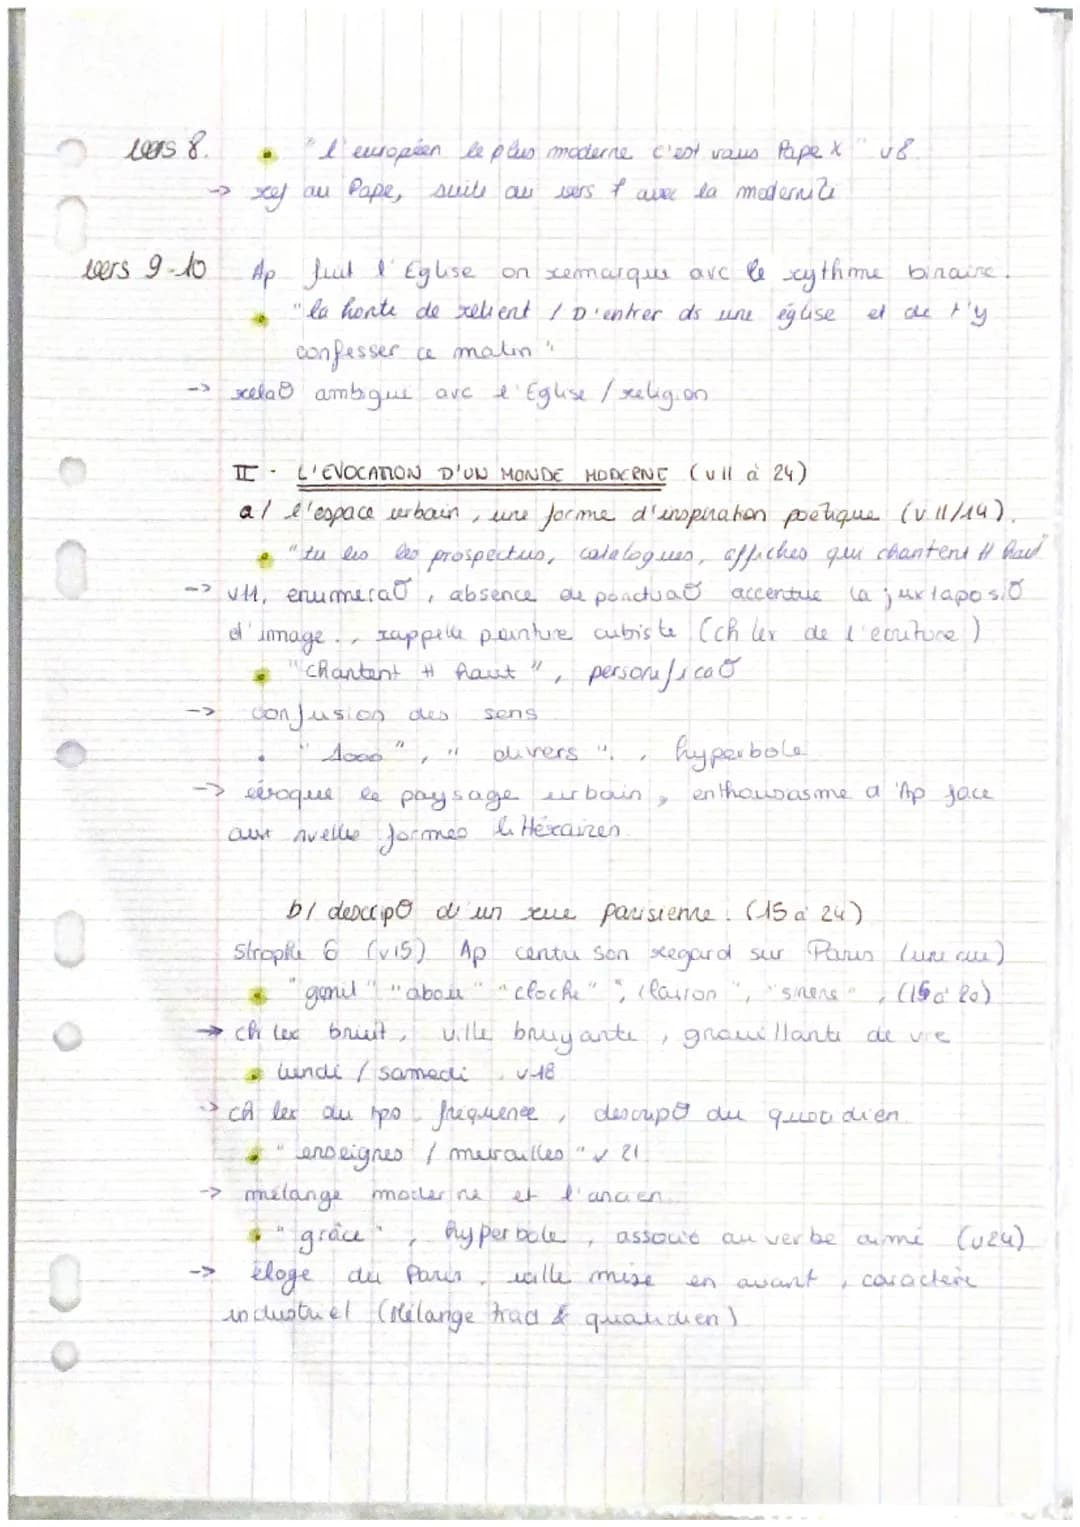 vers 8. • "l'européen le plus moderne c'est vous Pape X" v8.
-> ref au Pape, suite au vers 7 avec la modernité
vers 9-10 Ap fuit l'Eglise on remarque avc le rythme binaire.
• "la honte de retient / D'entrer ds une église et de t'y
confesser ce matin"
-> relaO ambigue avc l'Eglise / religion
II - L'EVOCATION D'UN MONDE MODERNE (v11 à 24)
a/ l'espace urbain, une forme d'inspiration poétique (v.11/14).
• "tu lis les prospectus, catalogues, affiches qui chantent # haut
-> v11, enuméraO, absence de ponctuaO accentue la juxtaposiO
d'image., rappelle peinture cubiste (ch lex de l'ecriture)
• "chantent # haut", personificaO
-> confusion des sens
• "1000", "divers"., hyperbole
-> évoque le paysage urbain, enthousiasme d'Ap face
aux nvelles formes littéraires.
b/ descripO d'un rue parisienne. (15 à 24)
Strophe 6 (v15) Ap centre son regard sur Paris (une rue)
• "gémit" "aboie" "cloche", "clairon", "sirène", (15 à 20)
-> ch lex bruit, ville bruyante, grouillante de vie
• lundi / samedi v18
-> ch lex du tpo fréquence, descripO du quotidien.
• "enseignes / murailles" v 21
-> mélange moderne et l'ancien.
• "grâce", hyperbole, associé au verbe aimé (v24)
-> éloge du Paris, ville mise en avant, caractère
industriel (Mélange trad & quotidien)